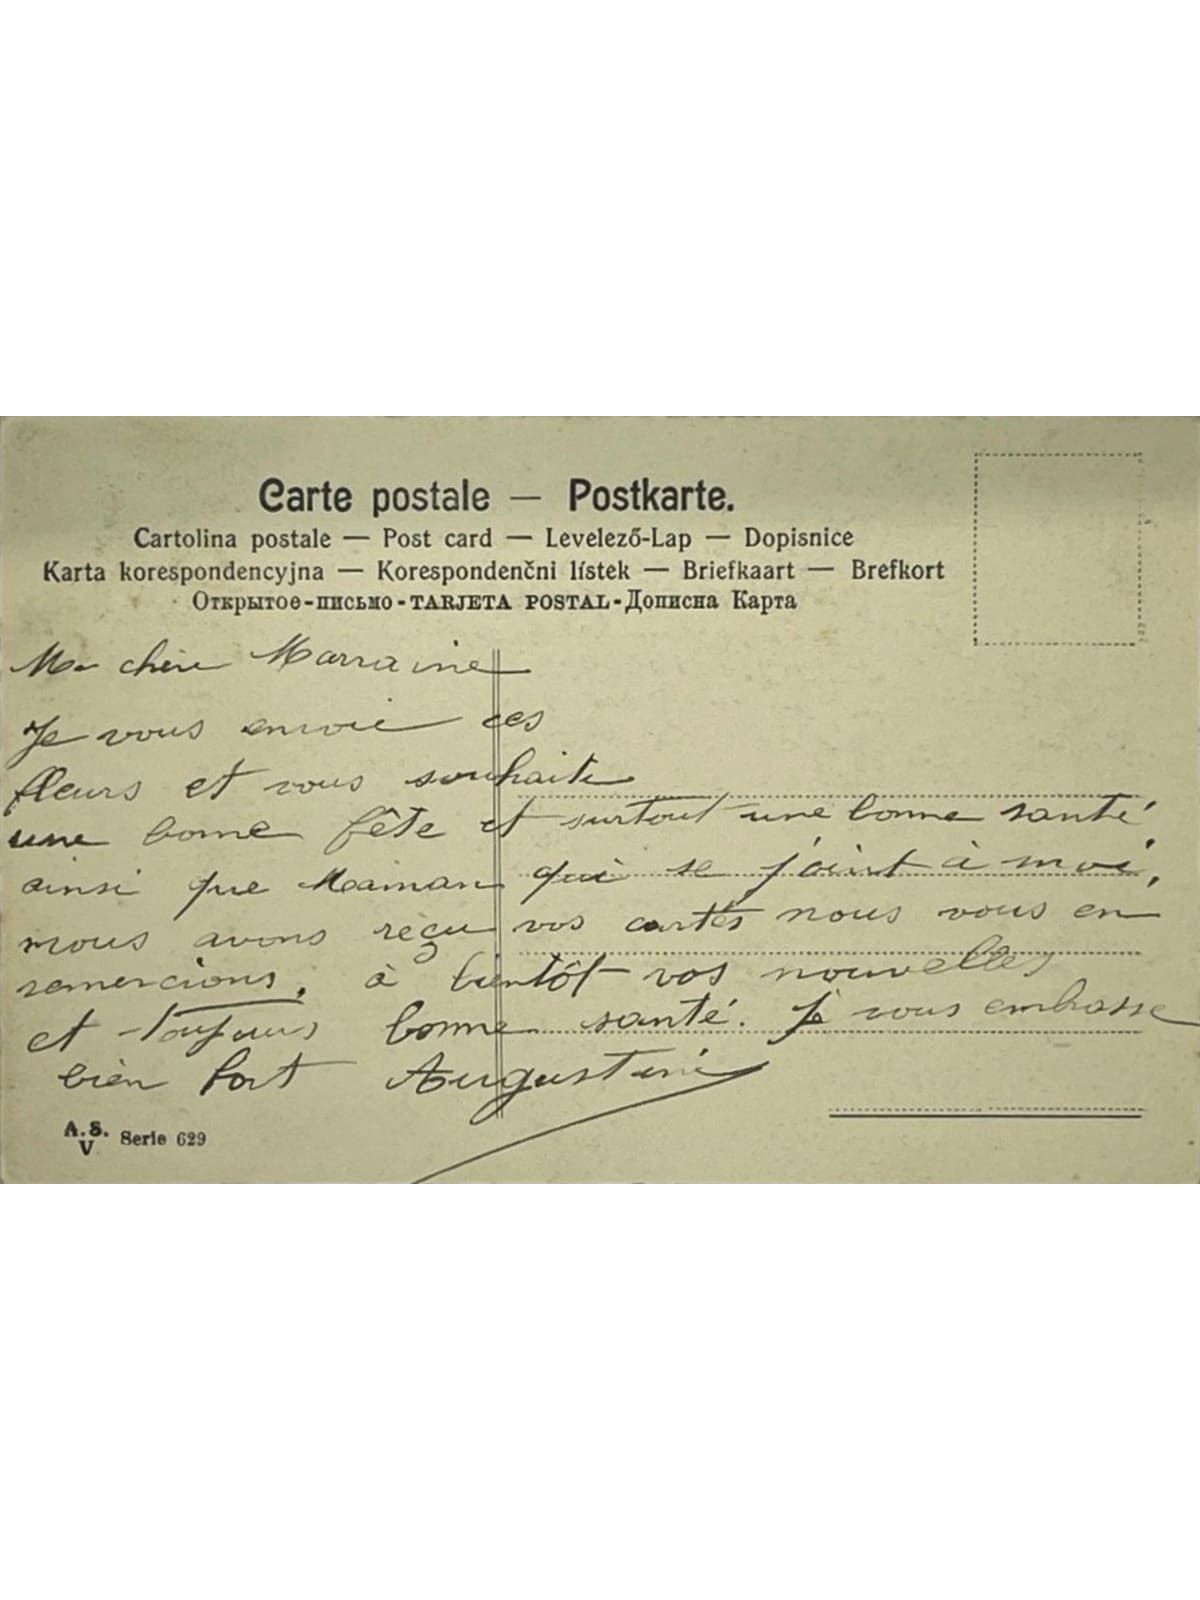 Carte postale — Postkarte.
Cartolina postale — Post card — Levelező-Lap — Dopisnice
Karta korespondencyjna — Korespondenčni lístek — Briefkaart — Brefkort
Открытое-письмо-TARJETA POSTAL-Дописна Карта
Ma chère Marraine
Je vous envoie ces
fleurs et vous souhaite
une bonne fête et surtout une bonne santé,
ainsi que Maman qui se joint à moi,
nous avons reçu vos cartes nous vous en
remercions, à bientôt vos nouvelles
et toujours bonne santé. Je vous embrasse
bien fort Augustine
A.S.
V Serie 629